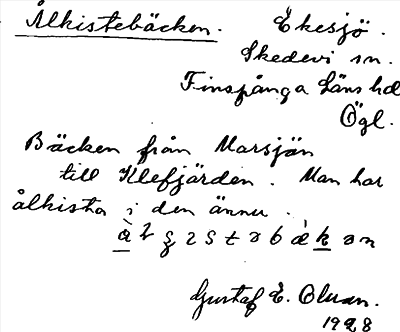 Ålkistebäcken.
Ekesjö.
Skedevi sn.
Finspånga Läns hd
Ögl.
Bäcken från Marsjön
till Klefjärden. Man har
ålkista i den ännu.
Gustaf E.
1928